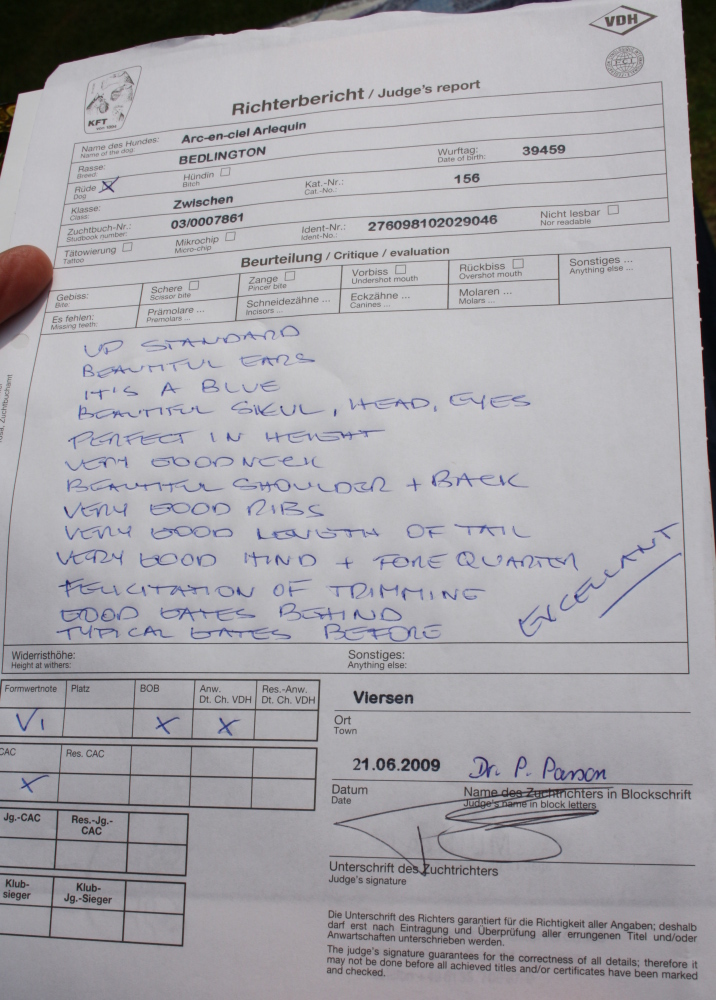 VDH
FCI
KFT
Richterbericht / Judge's report
Name des Hundes: Arc-en-ciel Arlequin
Name of the dog:
Rasse: BEDLINGTON Wurftag: 39459
Breed: Date of birth:
Rüde X Hündin ☐ Kat.-Nr.: 156
Dog Bitch Cat.-No.:
Klasse: Zwischen
Class:
Zuchtbuch-Nr.: 03/0007861 Ident-Nr.: 276098102029046 Nicht lesbar ☐
Studbook number: Ident-No.: Nor readable
Tätowierung ☐ Mikrochip ☐
Tattoo Micro-chip
Beurteilung / Critique / evaluation
Gebiss: Schere ☐ Zange ☐ Vorbiss ☐ Rückbiss ☐ Sonstiges ...
Bite: Scissor bite Pincer bite Undershot mouth Overshot mouth Anything else ...
Es fehlen: Prämolare ... Schneidezähne ... Eckzähne ... Molaren ...
Missing teeth: Premolars ... Incisors ... Canines ... Molars ...
UP STANDARD
BEAUTIFUL EARS
IT'S A BLUE
BEAUTIFUL SKUL, HEAD, EYES
PERFECT IN HEIGHT
VERY GOOD NECK
BEAUTIFUL SHOULDER + BACK
VERY GOOD RIBS
VERY GOOD LENGTH OF TAIL
VERY GOOD HIND + FORE QUARTER
FELICITATION OF TRIMMING
GOOD GATES BEHIND
TYPICAL GATES BEFORE
EXCELLANT
Widerristhöhe: Sonstiges:
Height at withers: Anything else:
Formwertnote Platz BOB Anw. Dt. Ch. VDH Res.-Anw. Dt. Ch. VDH
V1 X X
CAC Res. CAC
X
Jg.-CAC Res.-Jg.-CAC
Klub-sieger Klub-Jg.-Sieger
Viersen
Ort
Town
21.06.2009 Dr. P. Parson
Datum Name des Zuchtrichters in Blockschrift
Date Judge's name in block letters
Unterschrift des Zuchtrichters
Judge's signature
Die Unterschrift des Richters garantiert für die Richtigkeit aller Angaben; deshalb
darf erst nach Eintragung und Überprüfung aller errungenen Titel und/oder
Anwartschaften unterschrieben werden.
The judge's signature guarantees for the correctness of all details; therefore it
may not be done before all achieved titles and/or certificates have been marked
and checked.